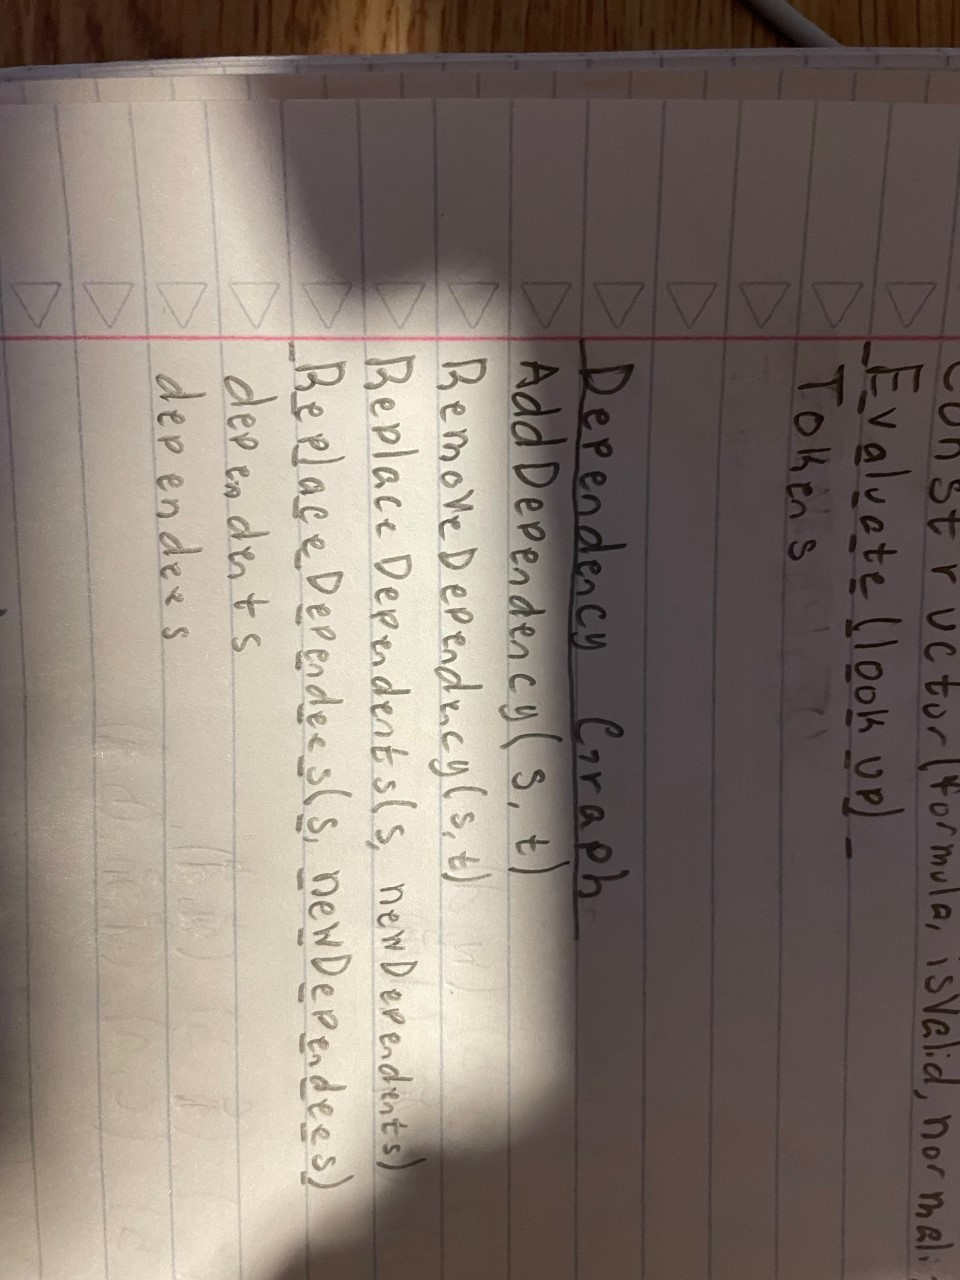 Constructor(formula, isValid, normali
Evaluate(lookup)
Tokens
Dependency Graph
AddDependency(s,t)
RemoveDependency(s,t)
ReplaceDependents(s, newDependents)
ReplaceDependees(s, newDependees)
dependents
dependees